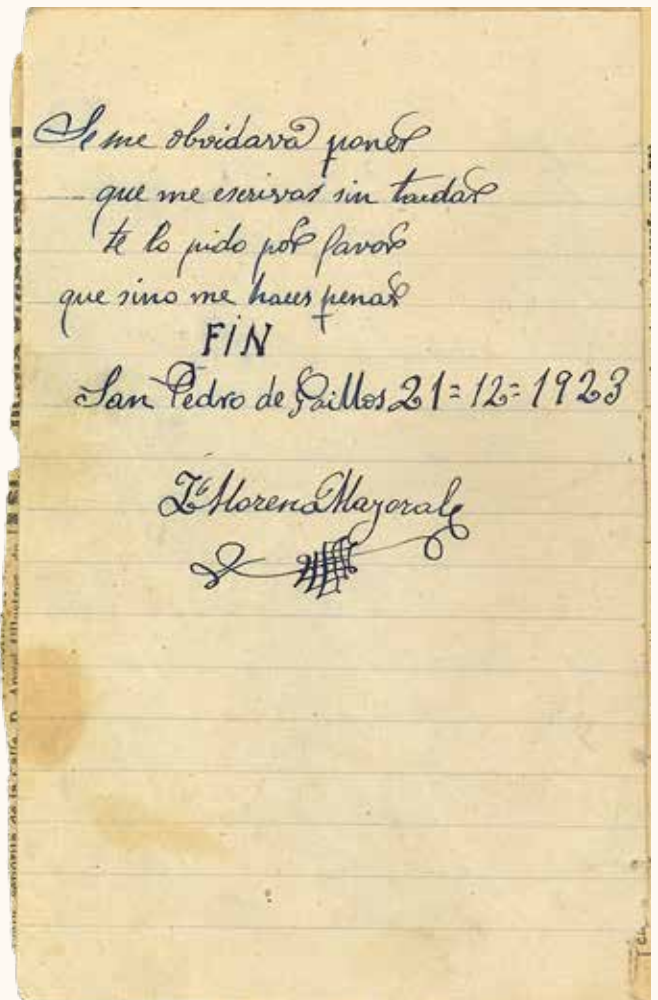 Se me olvidava poner
que me escrivas sin tardar
te lo pido por favor
que sino me haces penar
FIN
San Pedro de Gaillos 21=12=1923
Moreno Mayoral